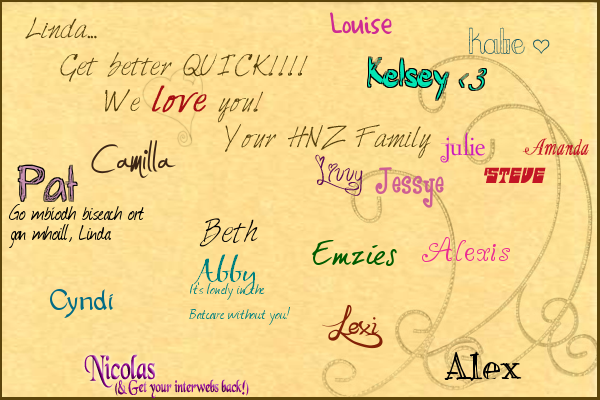 Linda...
Get better QUICK!!!!
We love you!
Your HNZ Family
Louise
Katie ♡
Kelsey <3
julie
Amanda
Camilla
Pat
Go mbiodh biseach ort
gan mhoill, Linda
Livvy
Jessye
'STEVE
Beth
Abby
It's lonely in the
Batcave without you!
Emzies
Alexis
Cyndi
Lexi
Alex
Nicolas
(& Get your interwebs back!)